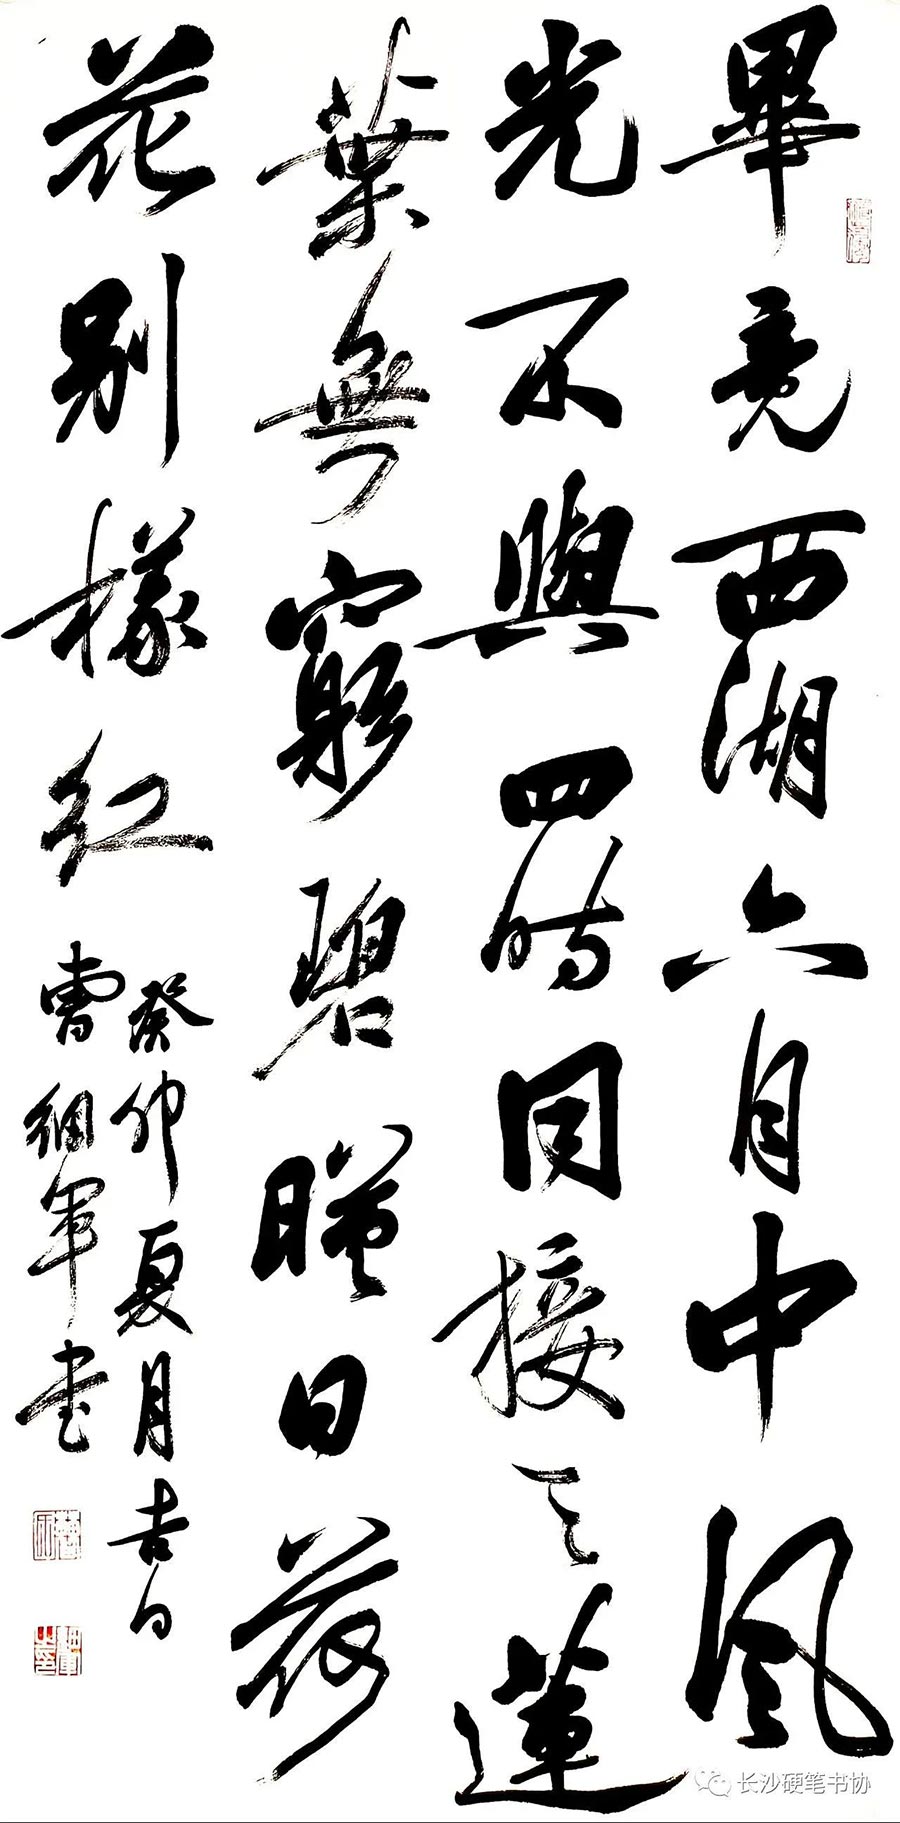 畢竟西湖六月中風
光不與四時同接天蓮
葉無窮碧暎日荷
花别樣紅
癸卯夏月吉日
曹軍書
长沙硬笔书协